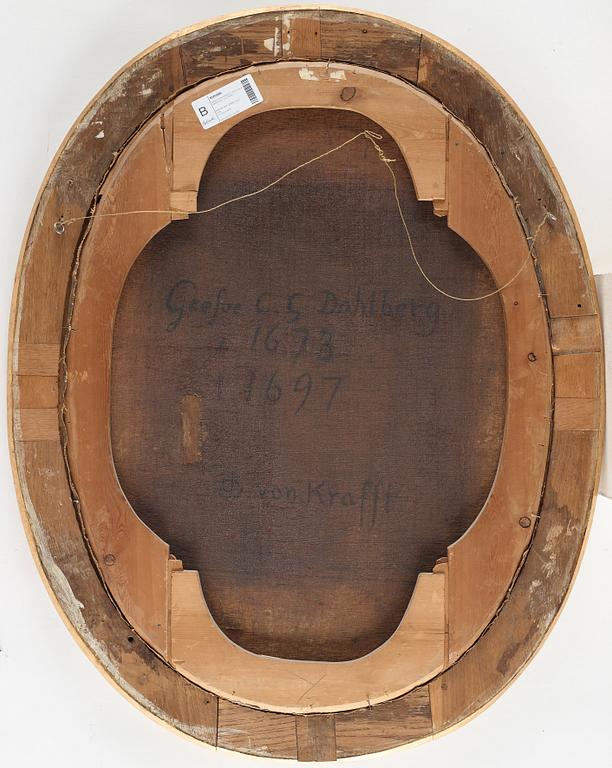 B
Grefve C. G Dahlberg
* 1673
† 1697
D. von Krafft